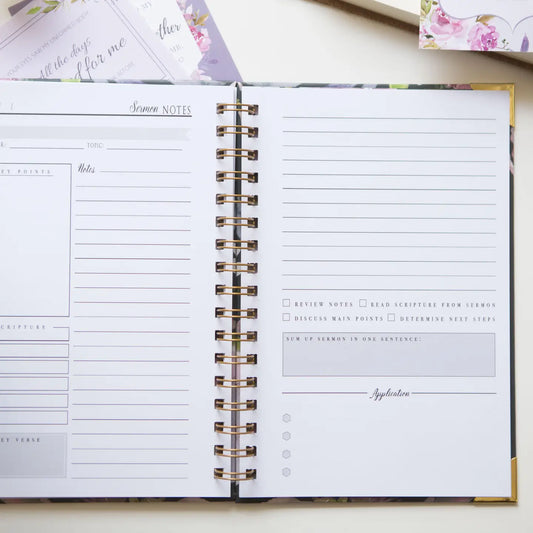 YOUR EYES SAW MY UNFORMED BODY
All the days
d for me
Sermon NOTES
TOPIC:
EY POINTS
Notes
CRIPTURE
EY VERSE
REVIEW NOTES
READ SCRIPTURE FROM SERMON
DISCUSS MAIN POINTS
DETERMINE NEXT STEPS
SUM UP SERMON IN ONE SENTENCE:
Application